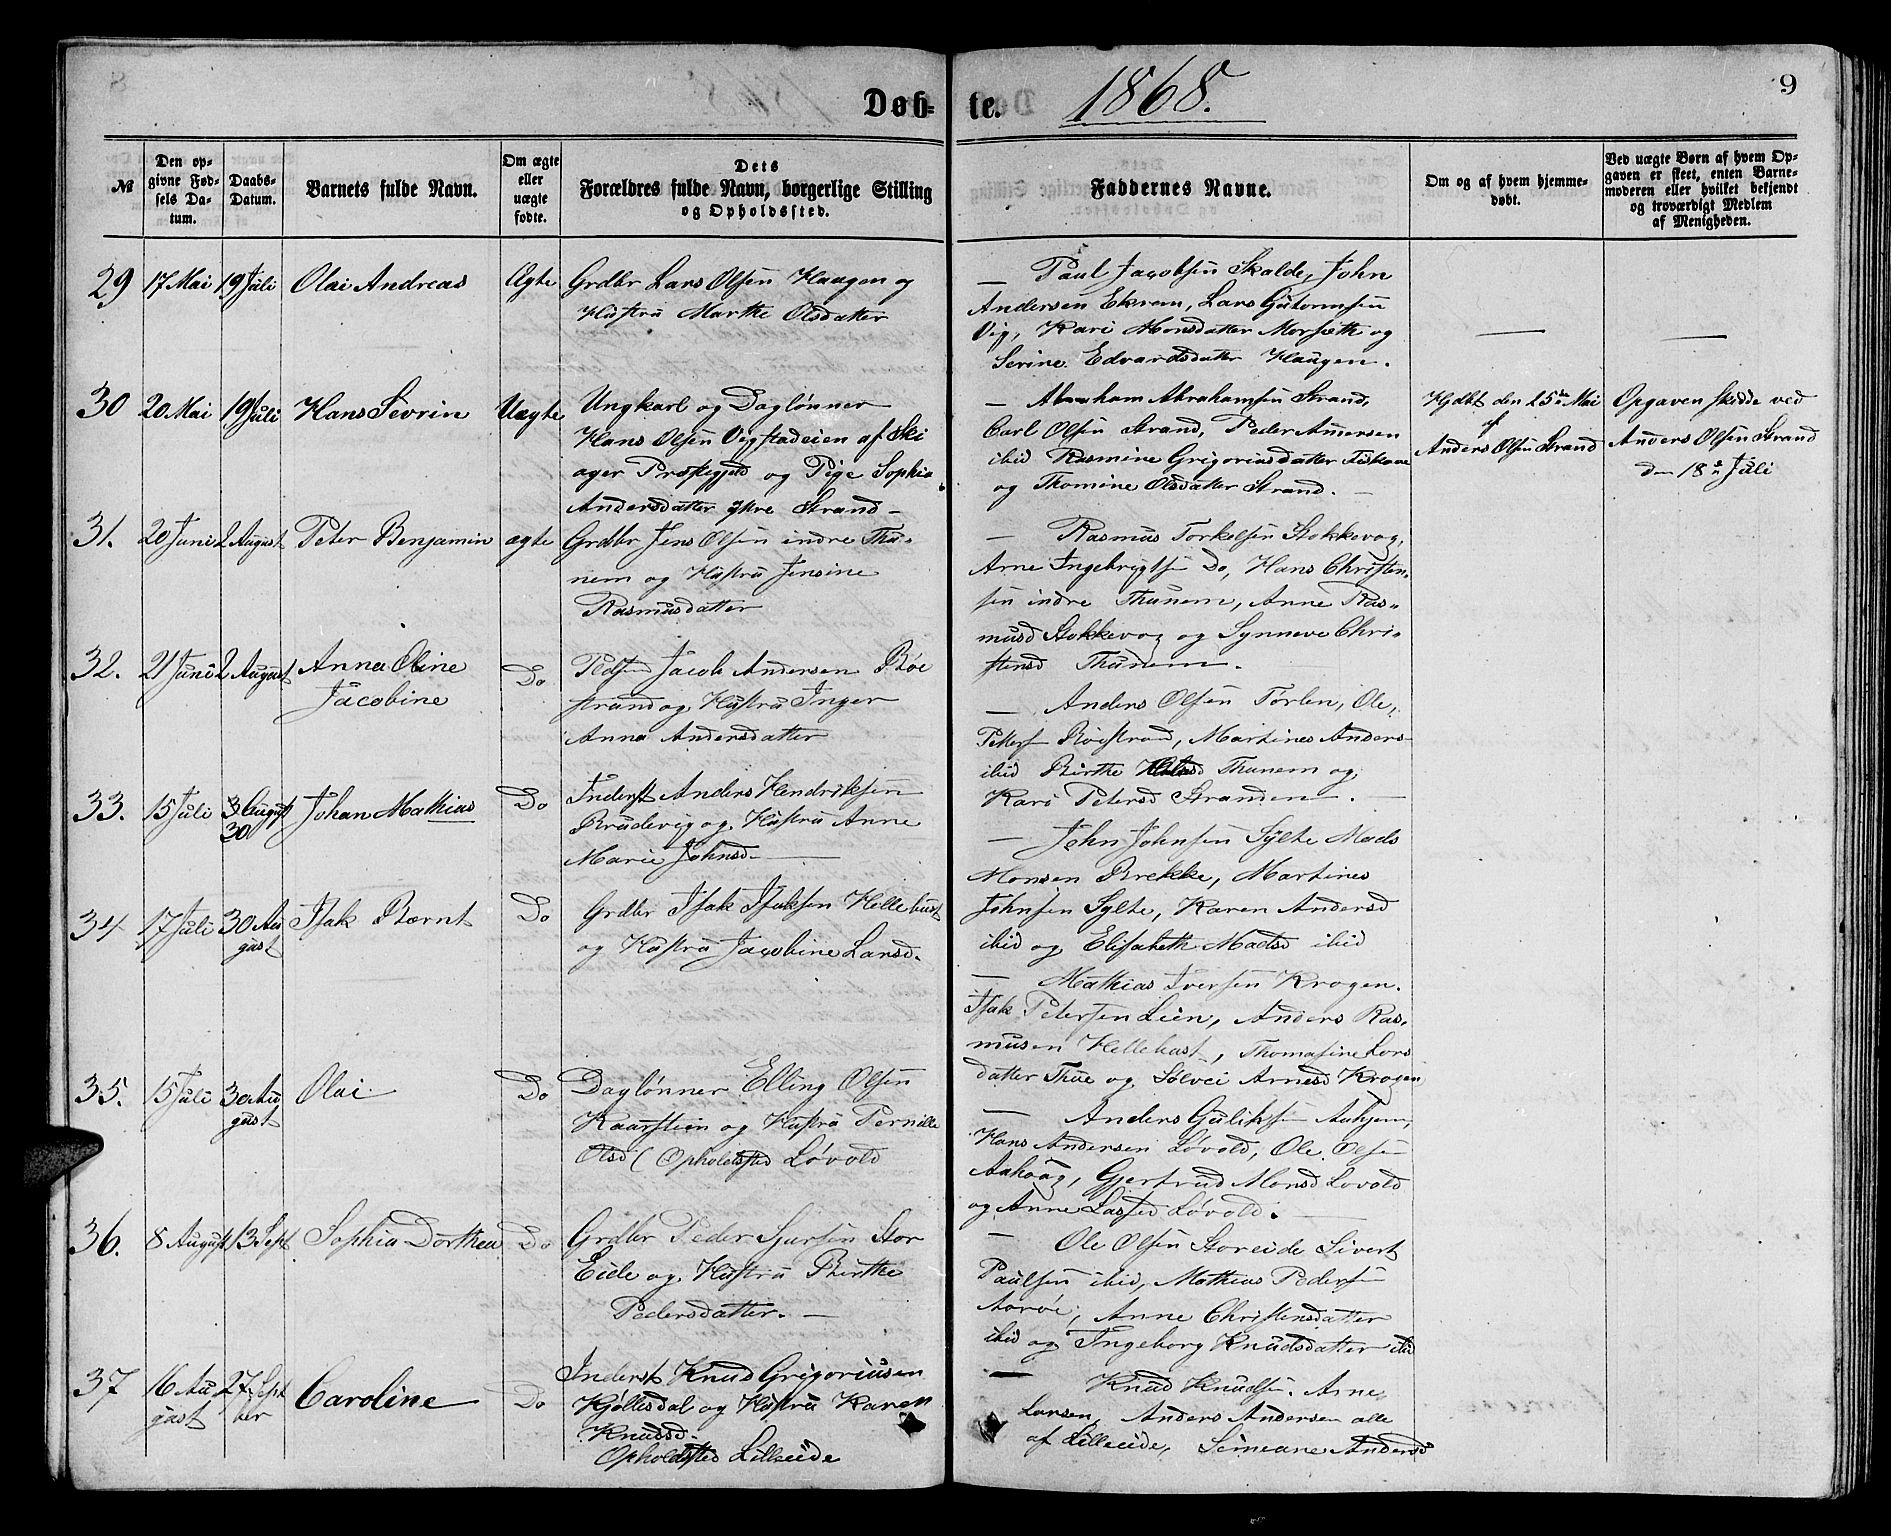 Døb-te. 1868. 9
№
Den opgivne Fødsels Datum.
Daabs-Datum.
Barnets fulde Navn.
Om ægte eller uægte fødte.
Dets Forældres fulde Navn, borgerlige Stilling og Opholdssted.
Faddernes Navne.
Om og af hvem hjemmedøbt.
Ved uægte Børn af hvem Opgaven er skeet, enten Barnemoderen eller hvilket bekjendt og troværdigt Medlem af Menigheden.
29 17 Mai 19 Juli Olai Andreas Ægte
Grdbr Lars Olsen Haagen og
Hustru Marthe Olsdatter
— Paul Jacobsen Skalde, John
Andersen Ekrem, Lars Guttormsen
Vig, Kari Monsdatter Morsæth og
Serine Edvardsdatter Haugen.
30 20 Mai 19 Juli Hans Sevrin Uægte
Ungkarl og Daglønner
Hans Olsen Vigstadeien af Ski
ager Præstegjeld og Pige Sophie
Andersdatter ytre Strand —
— Abraham Abrahamsen Strand,
Carl Olsen Strand, Peder Andersen
ibid Rasmine Grigoriusdatter
og Thomine Olsdatter Strand. —
Hjdbt den 25de Mai
af
Anders Olsen Strand
Opgaven skedde ved
Anders Olsen Strand
den 18de Juli
31. 20 Juni 2 August Peter Benjamin ægte
Grdbr Jens Olsen indre Thu-
nem og Hustru Jensine
Rasmusdatter
— Rasmus Torkelsen Stokkevog,
Arne Ingebrigts Do, Hans Christen-
sen indre Thunem, Anne Ras-
musd Stokkevog og Synneve Chri-
stensd Thunem.
32. 21 Juni 2 August Anna Oline
Jacobine Do
Pladsm Jacob Andersen Røe
strand og Hustru Inger
Anna Andersdatter
— Anders Olsen Tørlen, Ole
Petters Røestrand, Martines Anders
ibid Birthe Thunem og
Kari Petersd Stranden.
33. 15 Juli 3 August
30 Johan Mathias Do
Inderst Anders Hendriksen
Brudevig og Hustru Anne
Marie Johnsd. —
— John Johnsen Sylte Mads
Monsen Brekke, Martines
Johnsen Sylte, Karen Andersd
ibid og Elisabeth Madsd ibid
34 17 Juli 30 Au
gust Isak Bernt Do
Grdbr Isak Isaksen Hellebust
og Hustru Jacobine Larsd.
— Mathias Iversen Krogen.
Isak Petersen Lien, Anders Ras-
musen Hellebust, Thomasine Lars
datter Thue og Sølvei Arnesd Krogen
35. 15 Juli 30 Au
gust Olai Do
Daglønner Elling Olsen
Kaarstein og Hustru Pernille
Olsd (Opholdssted Løvold
— Anders Guliks Aahjem,
Hans Andersen Løvold, Ole Olsen
Aahaag, Gjertrud Monsd Lovold
og Anne Lassed Løvold. —
36. 8 August 13 Sept Sophia Dorthea Do
Grdbr Peder Sjursen Stor
Eide og Hustru Birthe
Pedersdatter. —
— Ole Olsen Storeide Sivert
Paulsen ibid, Mathias Pedersen
Aarøe, Anne Christensdatter
ibid og Ingeborg Knudsdatter ibid
37 16 Au
gust 27 Sept
ber Caroline Do
Inderst Knud Grigoriusen
Kjøllesdal og Hustru Karen
Knudsd.
Opholdssted Lilleeide
— Knud Knudsen. Arne
Larsen, Anders Andersen alle
af Lilleeide, Simeane Andersd